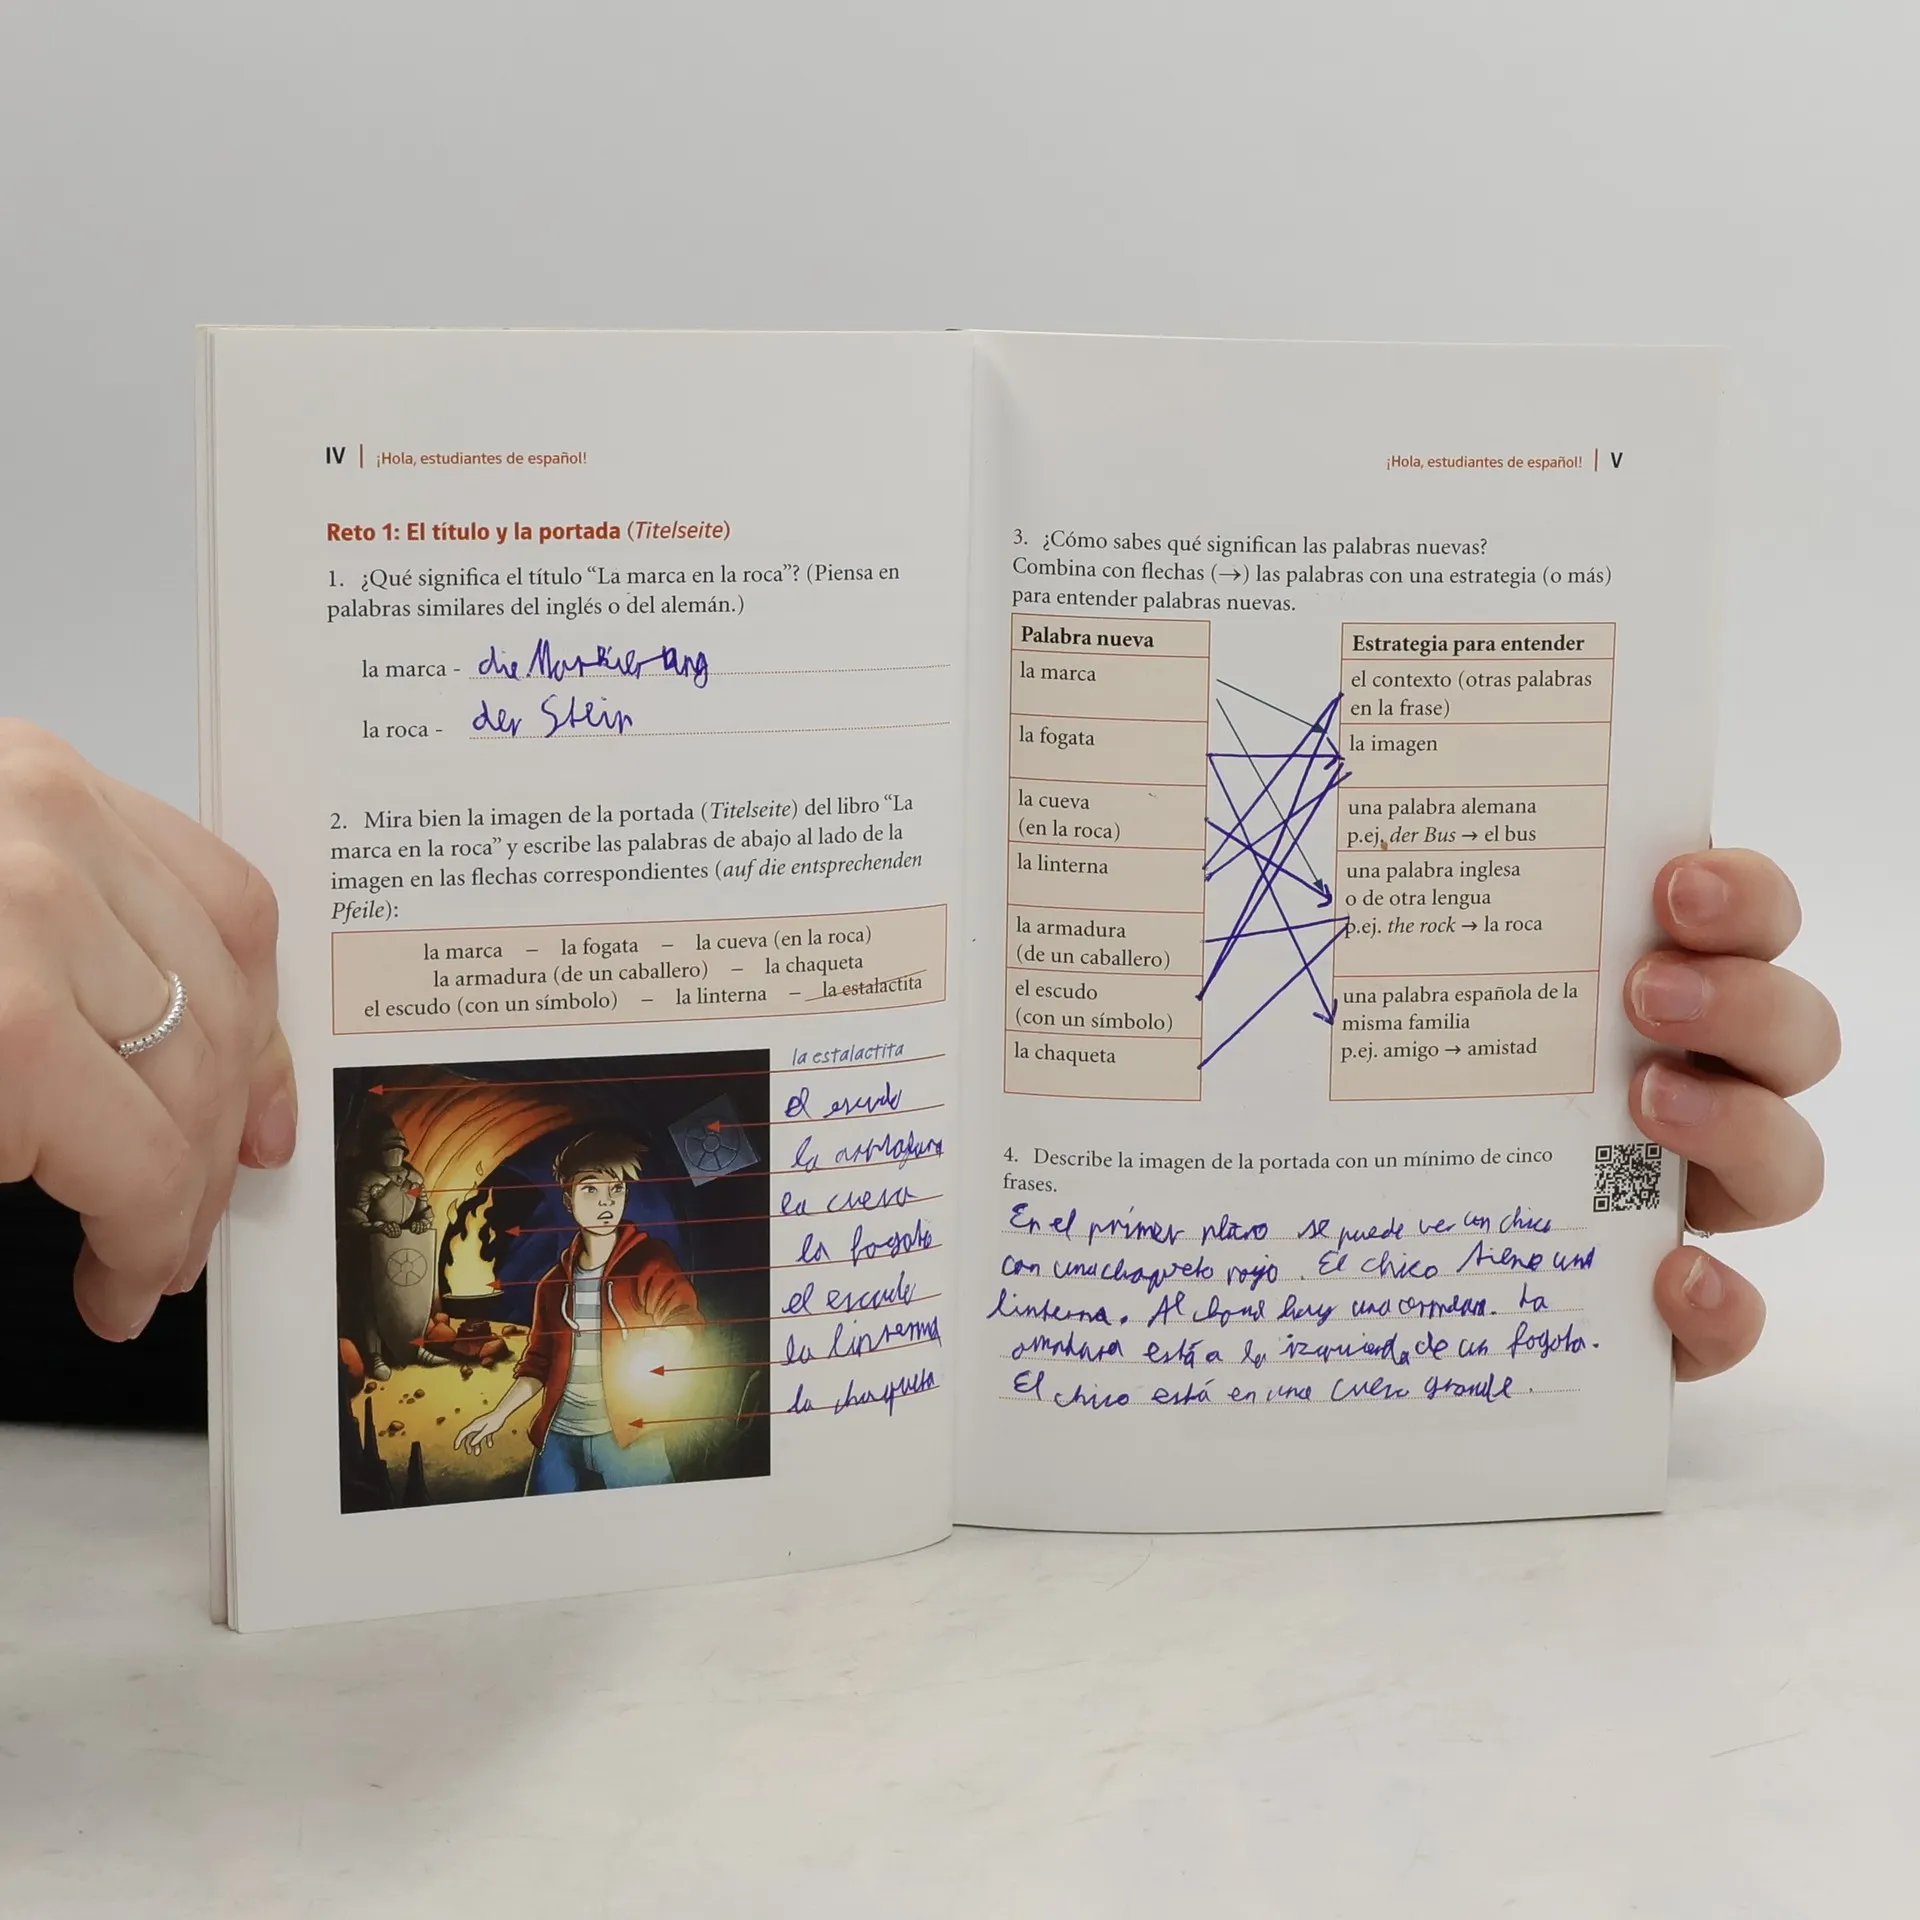 IV | ¡Hola, estudiantes de español!
Reto 1: El título y la portada (Titelseite)
1. ¿Qué significa el título “La marca en la roca”? (Piensa en
palabras similares del inglés o del alemán.)
la marca - die Markierung
la roca - der Stein
2. Mira bien la imagen de la portada (Titelseite) del libro “La
marca en la roca” y escribe las palabras de abajo al lado de la
imagen en las flechas correspondientes (auf die entsprechenden
Pfeile):
la marca – la fogata – la cueva (en la roca)
la armadura (de un caballero) – la chaqueta
el escudo (con un símbolo) – la linterna – la estalactita
la estalactita
el escudo
la armadura
la cueva
la fogata
el escudo
la linterna
la chaqueta
¡Hola, estudiantes de español! | V
3. ¿Cómo sabes qué significan las palabras nuevas?
Combina con flechas (→) las palabras con una estrategia (o más)
para entender palabras nuevas.
Palabra nueva
la marca
la fogata
la cueva
(en la roca)
la linterna
la armadura
(de un caballero)
el escudo
(con un símbolo)
la chaqueta
Estrategia para entender
el contexto (otras palabras
en la frase)
la imagen
una palabra alemana
p.ej. der Bus → el bus
una palabra inglesa
o de otra lengua
p.ej. the rock → la roca
una palabra española de la
misma familia
p.ej. amigo → amistad
4. Describe la imagen de la portada con un mínimo de cinco
frases.
En el primer plano se puede ver un chico
con una chaqueta roja. El chico tiene una
linterna. Al hay una La
está a la izquierda de un fogata.
El chico está en una cueva grande.